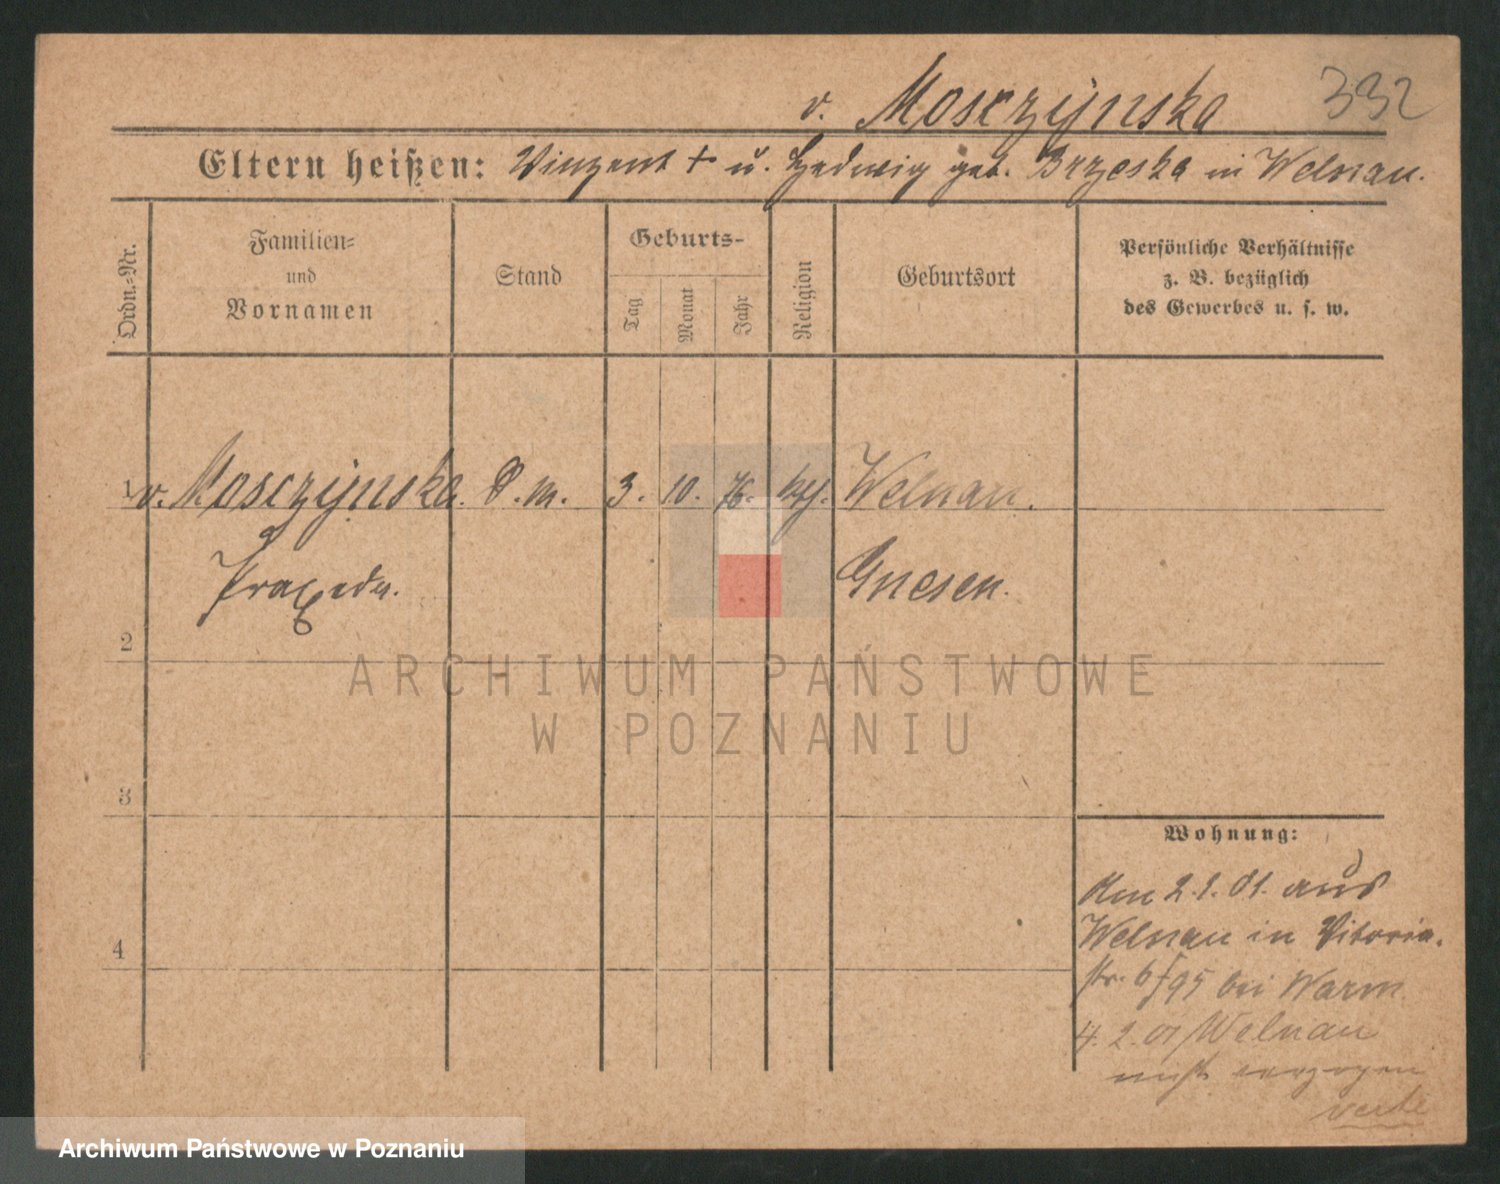 v. Mosczijnska 332
Eltern heißen: Vinzent + u. Hedwig geb. Brzeska in Welnau.
Ordn.-Nr.
Familien-
und
Vornamen
Stand
Geburts-
Tag
Monat
Jahr
Religion
Geburtsort
Persönliche Verhältnisse
z. B. bezüglich
des Gewerbes u. s. w.
1 v. Mosczijnska. D. m. 3. 10. 76. kth. Welnau.
Praxeda. Gnesen.
2
3
4
Wohnung:
Am 2.1.01. aus
Welnau in Vitoria-
str. 6/95 bei Warm
4. 2. 01 Welnau
nicht verzogen
verte
ARCHIWUM PAŃSTWOWE
W POZNANIU
Archiwum Państwowe w Poznaniu